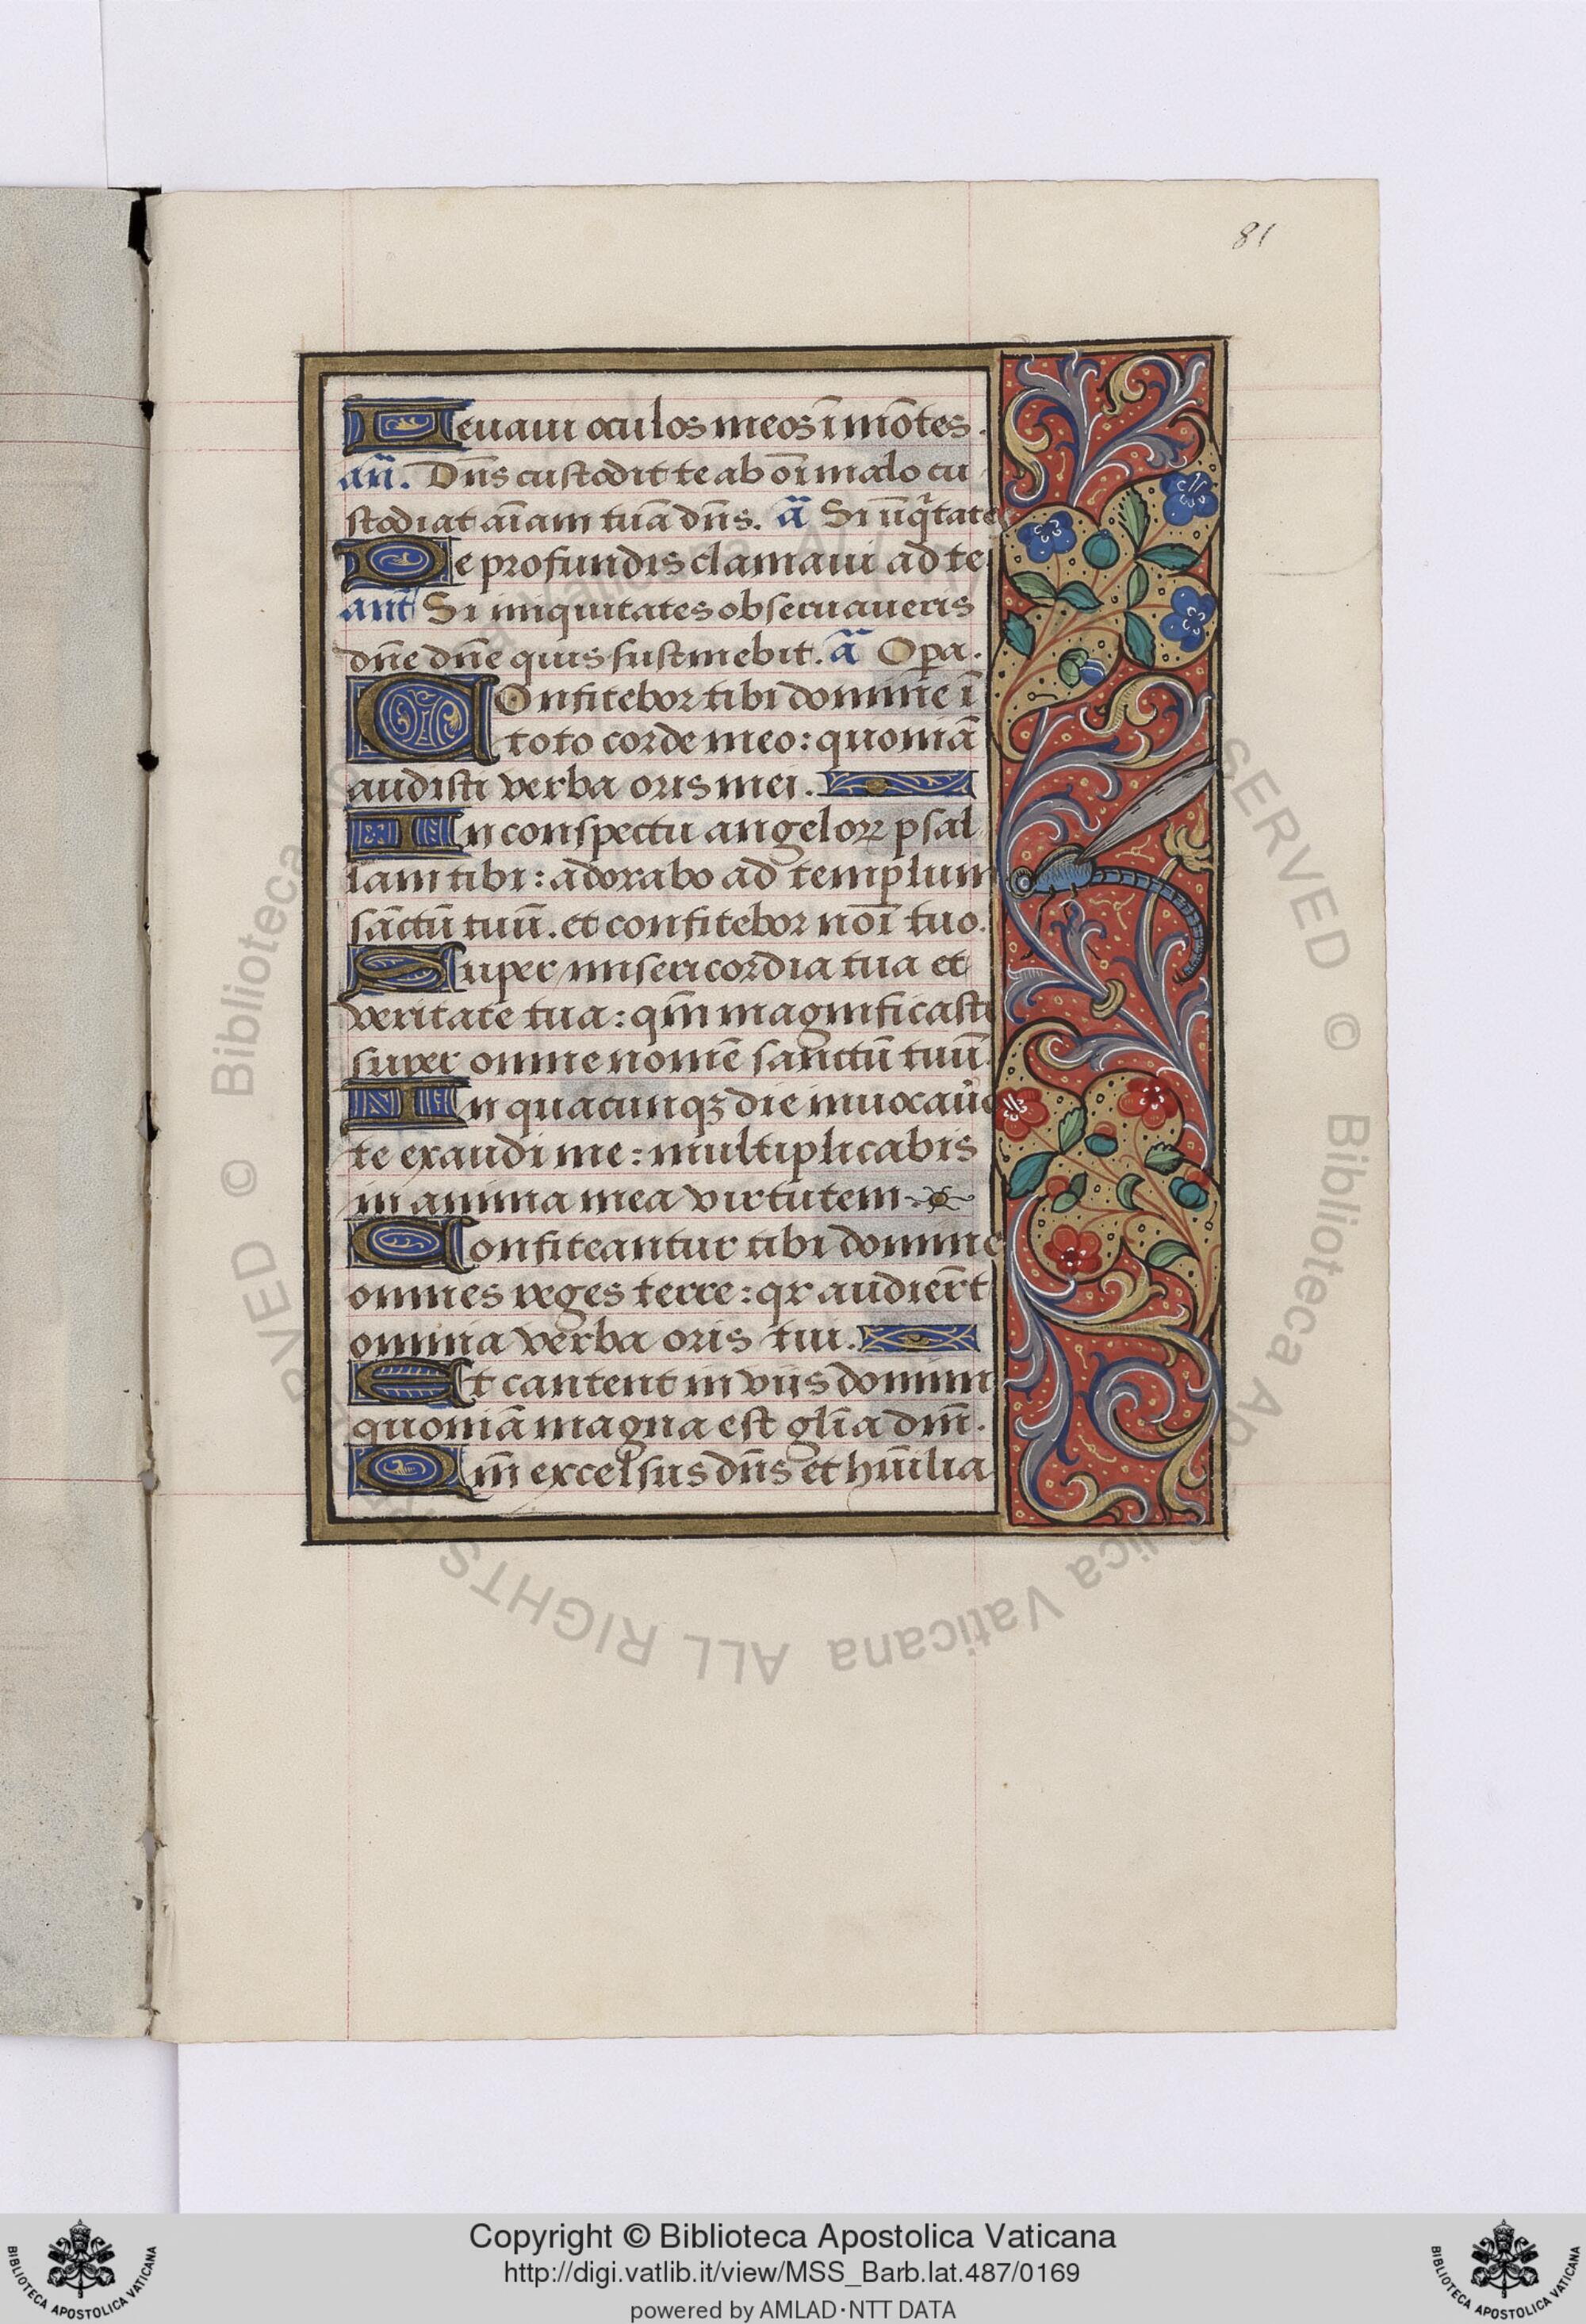 81
Leuaui oculos meos ī mōtes.
añ. Dñs custodit te ab oī malo cu
stodiat aīam tuā dñs. ā Si iīqͥtate
De profundis clamaui ad te
ant̄ Si iniquitates obseruaueris
dn̄e dn̄e quis sustinebit. ā Opa.
COnfitebor tibi domine ī
toto corde meo: quoniā
audisti verba oris mei.
In conspectu angeloꝝ psal
lam tibi: adorabo ad templum
sāctū tuū. et confitebor noī tuo.
Super misericordia tua et
veritate tua: qm̄ magnificasti
super omne nomē sanctū tuū.
In quacunqꝫ die inuocau̓o
te exaudi me: multiplicabis
in anima mea virtutem.
Confiteantur tibi domine
omnes reges terre: qr audier̄t
omnia verba oris tui.
Et cantent in viis domini
quoniā magna est gl̄ia dn̄i.
Qm̄ excelsus dn̄s et hūilia
Biblioteca Apostolica Vaticana ALL RIGHTS RESERVED ©
Copyright © Biblioteca Apostolica Vaticana
http://digi.vatlib.it/view/MSS_Barb.lat.487/0169
powered by AMLAD·NTT DATA
BIBLIOTECA APOSTOLICA VATICANA
BIBLIOTECA APOSTOLICA VATICANA